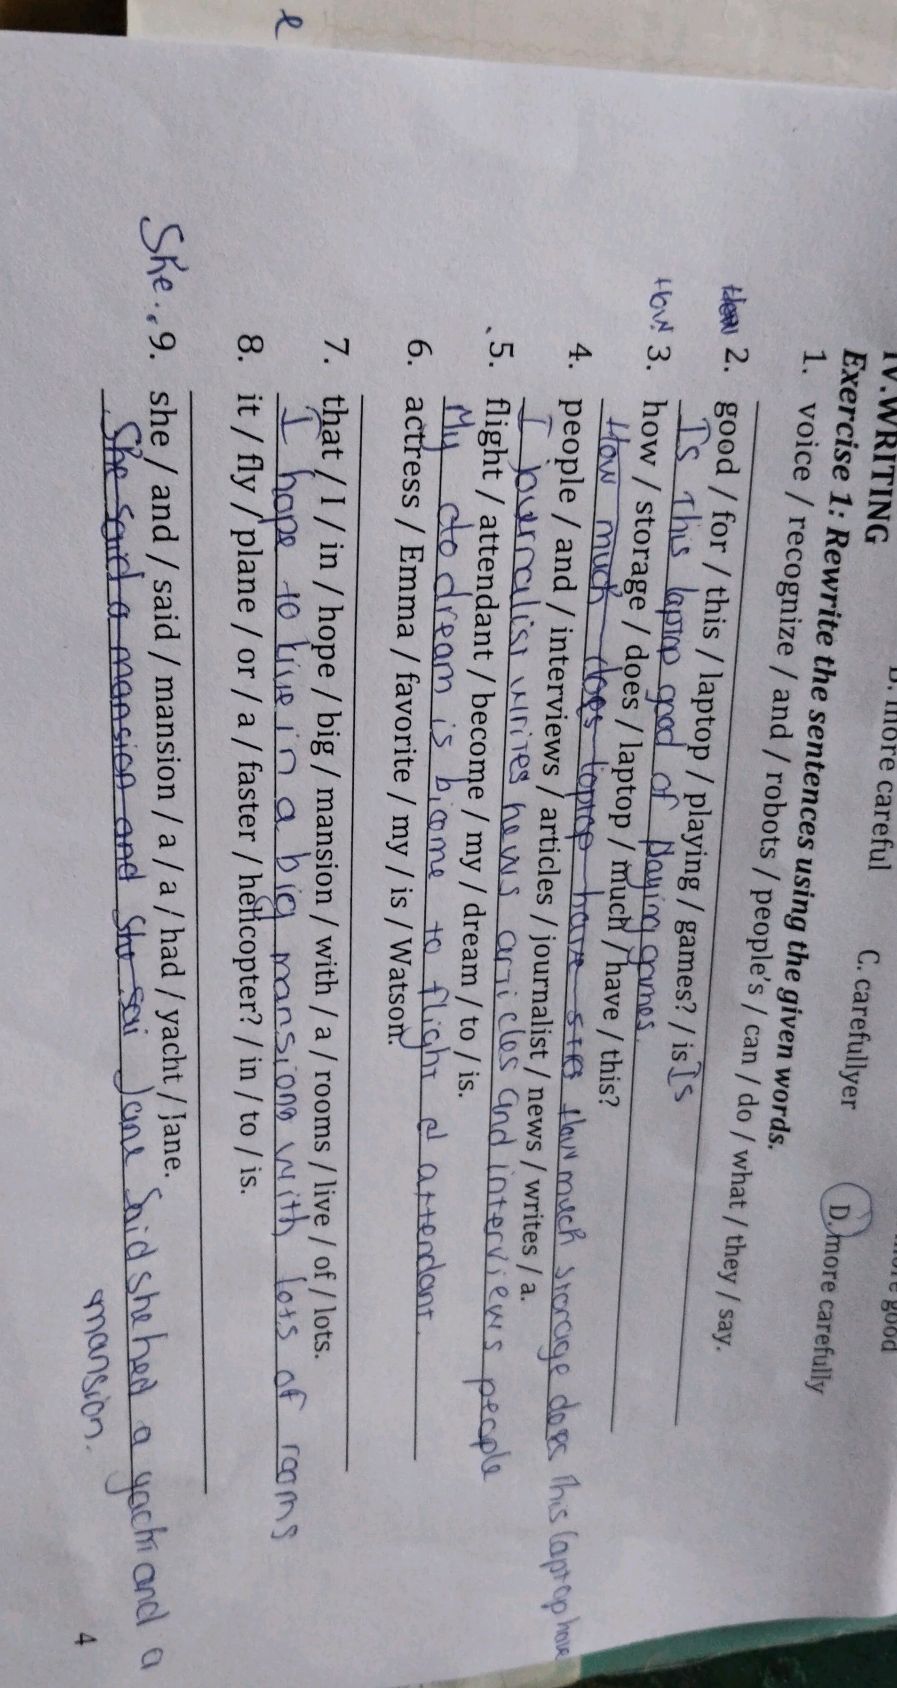 e
more careful C. carefullyer D. more carefully
IV.WRITING
Exercise 1: Rewrite the sentences using the given words.
1. voice / recognize / and / robots / people's / can / do / what / they / say.
2. good / for / this / laptop / playing / games? / is Is
Is this laptop good of playing games.
How 3. how / storage / does / laptop / much / have / this?
How much does laptop have How much storage does this laptop have
4. people / and / interviews / articles / journalist / news / writes / a.
I journalist writes news articles and interviews people
5. flight / attendant / become / my / dream / to / is.
My do dream is bicome to flight a attendant.
6. actress / Emma / favorite / my / is / Watson.
7. that / I / in / hope / big / mansion / with / a / rooms / live / of / lots.
I hope to live in a big mansiong with lots of rooms
8. it / fly / plane / or / a / faster / helicopter? / in / to / is.
She.. 9. she / and / said / mansion / a / a / had / yacht / Jane.
She said a mansion and she sai Jane Said she hed a yacht and a
mansion.
4